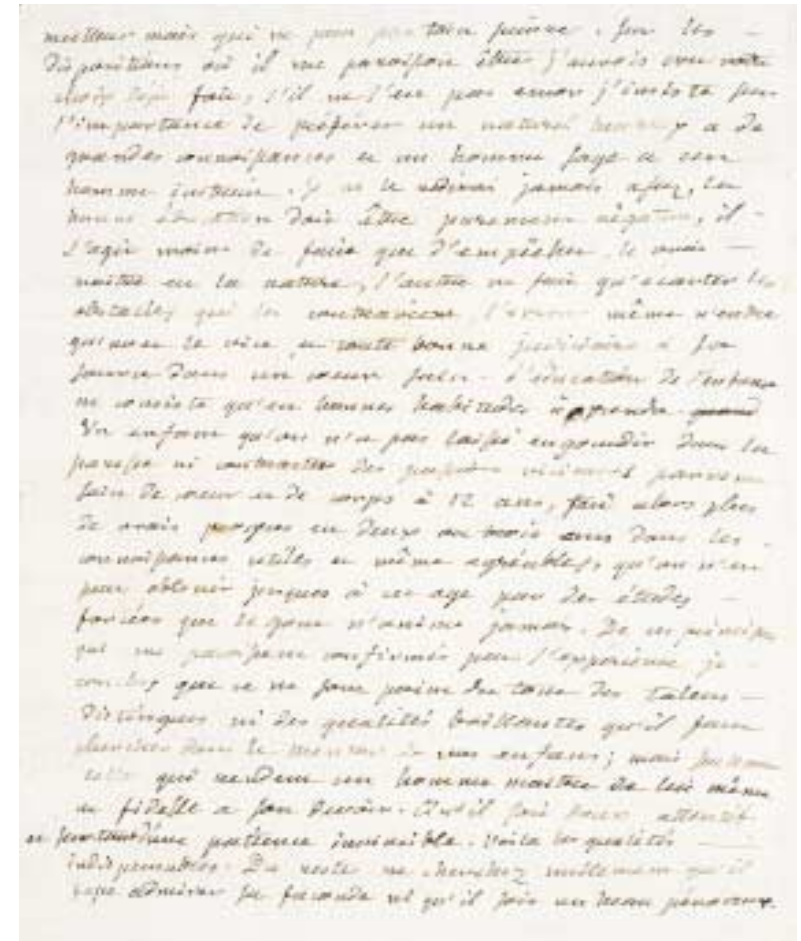 meilleur mais qui ne peut pas suivre. Sur les
dispositions où il me paroissoit être j'aurois cru votre
choix déja fait, s'il ne l'est pas encor j'insiste sur
l'importance de préférer un naturel heureux a de
grandes connoissances et un homme sage a un
homme instruit. Je ne le redirai jamais assez, la
bonne éducation doit être purement négative, il
s'agit moins de faire que d'empêcher, le vrai
maitre est la nature, l'autre ne fait qu'écarter les
obstacles qui la contrarient, l'erreur même n'entre
qu'avec le vice et toute bonne judiciaire a sa
source dans un coeur sain. L'éducation de l'enfance
ne consiste qu'en bonnes habitudes à prendre
Un enfant qu'on n'a pas laissé engourdir dans la
paresse ni contracter des passions vicieuses parvenu
sain de coeur et de corps à 12 ans, fait alors plus
de vrais progres en deux ou trois ans dans les
connoissances utiles et même agréables, qu'on n'en
peut obtenir jusques à cet age par des études
forcées que le gout n'anime jamais. De ces principes
qui me paroissent confirmés par l'expérience je
conclus que ce ne sont point du tout des talens
distingués ni des qualités brillantes qu'il faut
chercher dans le mentor de vos enfans; mais
celles qui rendent un homme maitre de lui même
et fidelle a son devoir. Qu'il soit doux attentif
et surtout d'une patience invincible. Voila les qualités
indispensables. Du reste ne cherchez nullement qu'il
fasse admirer sa faconde ni qu'il soit un beau